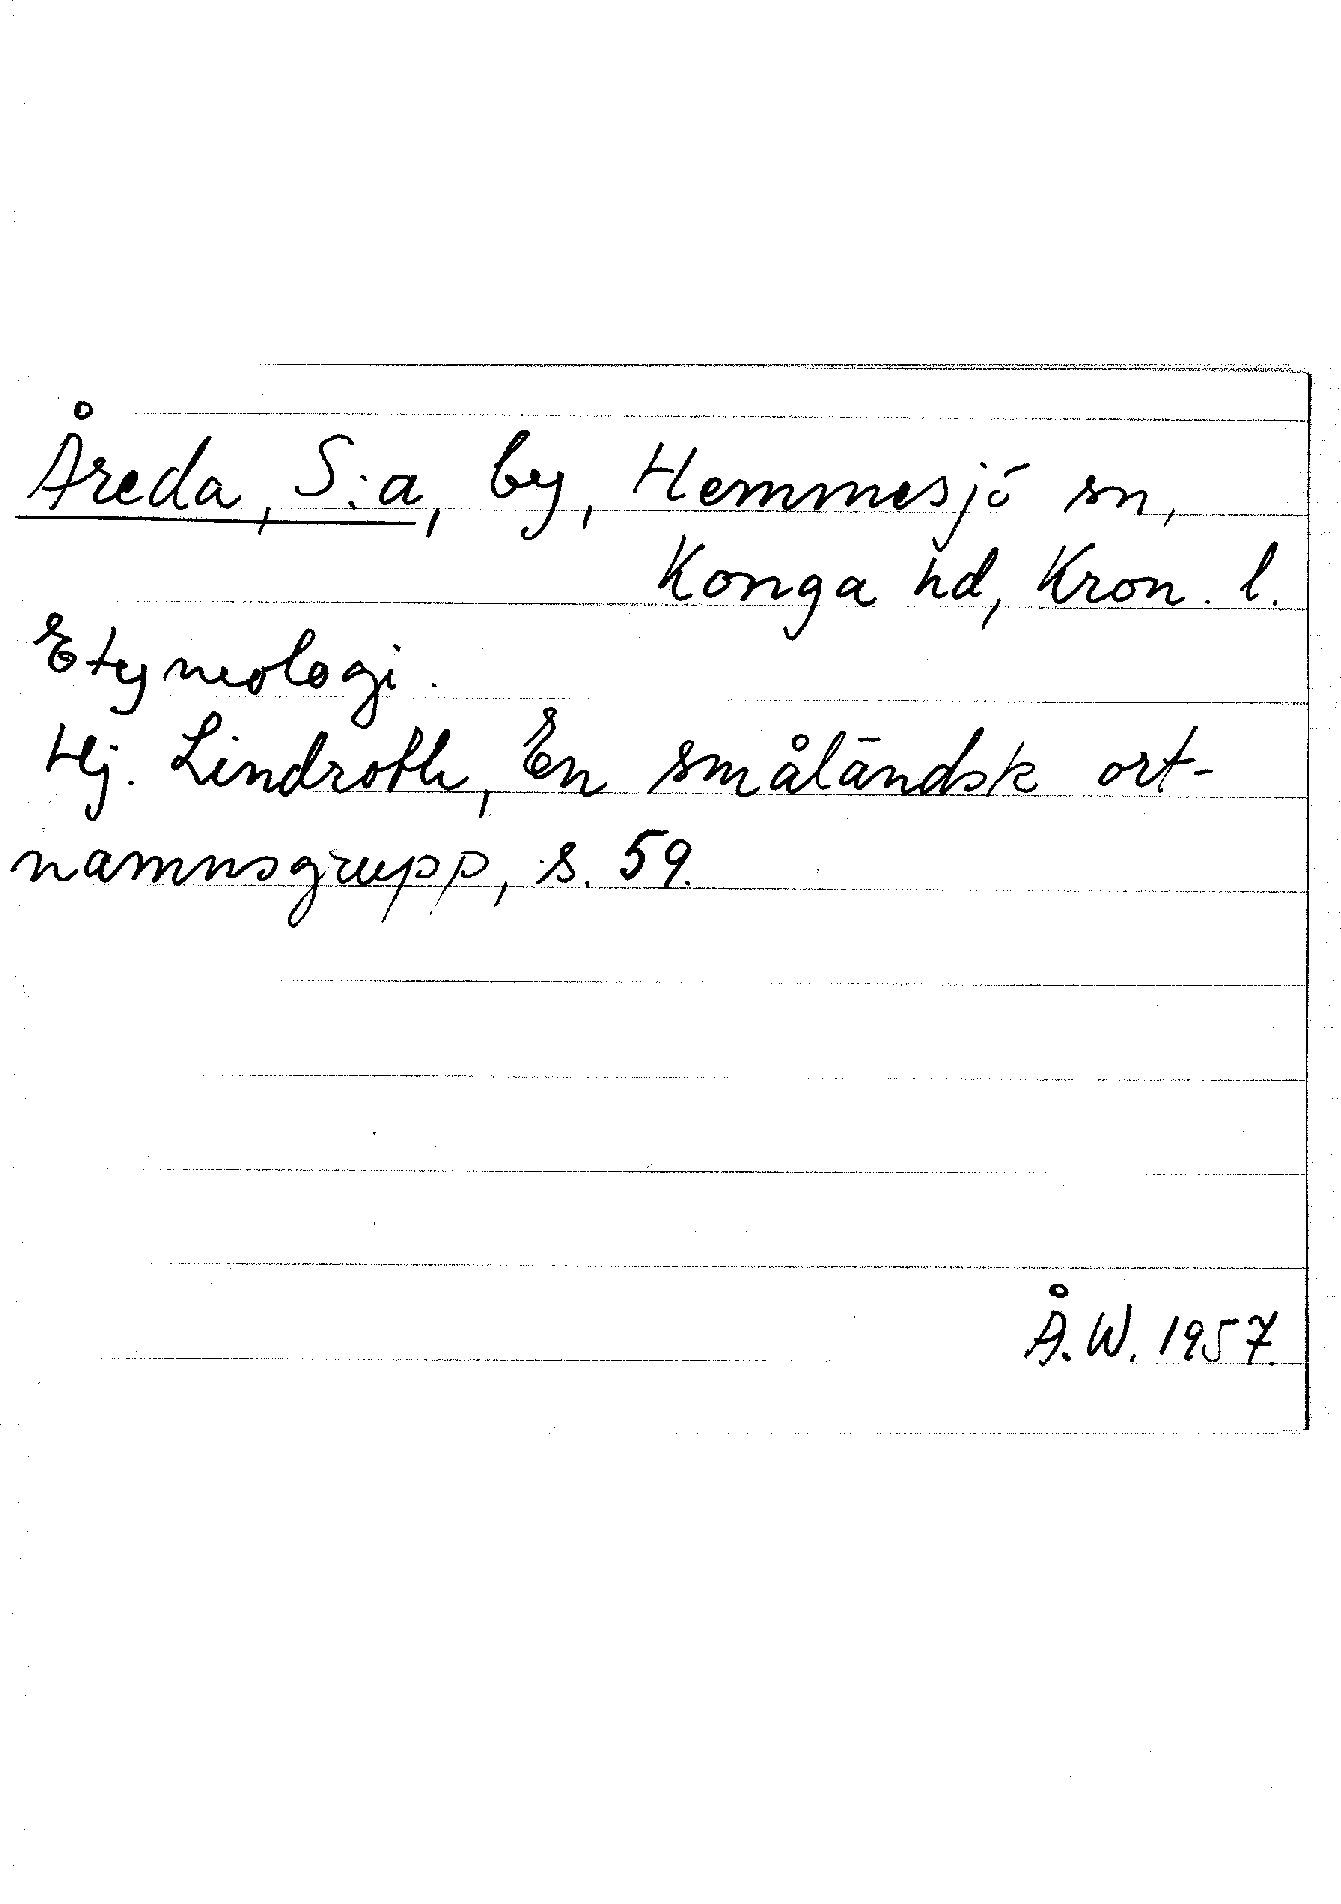 Åreda, S:a, by, Hemmesjö sn,
Konga hd, Kron. l.
Etymologi.
Hj. Lindroth, En småländsk ort-
namnsgrupp, s. 59.
Å.W. 1957.